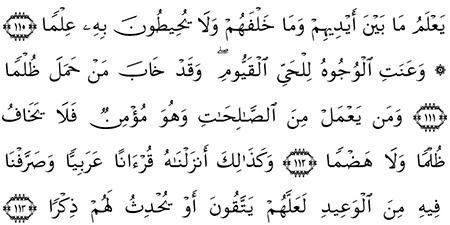 يَعْلَمُ مَا بَيْنَ أَيْدِيهِمْ وَمَا خَلْفَهُمْ وَلَا يُحِيطُونَ بِهِۦ عِلْمًا ﴿١١٠﴾
۞ وَعَنَتِ ٱلْوُجُوهُ لِلْحَىِّ ٱلْقَيُّومِ ۖ وَقَدْ خَابَ مَنْ حَمَلَ ظُلْمًا
﴿١١١﴾ وَمَن يَعْمَلْ مِنَ ٱلصَّـٰلِحَـٰتِ وَهُوَ مُؤْمِنٌ فَلَا يَخَافُ
ظُلْمًا وَلَا هَضْمًا ﴿١١٢﴾ وَكَذَٰلِكَ أَنزَلْنَـٰهُ قُرْءَانًا عَرَبِيًّا وَصَرَّفْنَا
فِيهِ مِنَ ٱلْوَعِيدِ لَعَلَّهُمْ يَتَّقُونَ أَوْ يُحْدِثُ لَهُمْ ذِكْرًا ﴿١١٣﴾